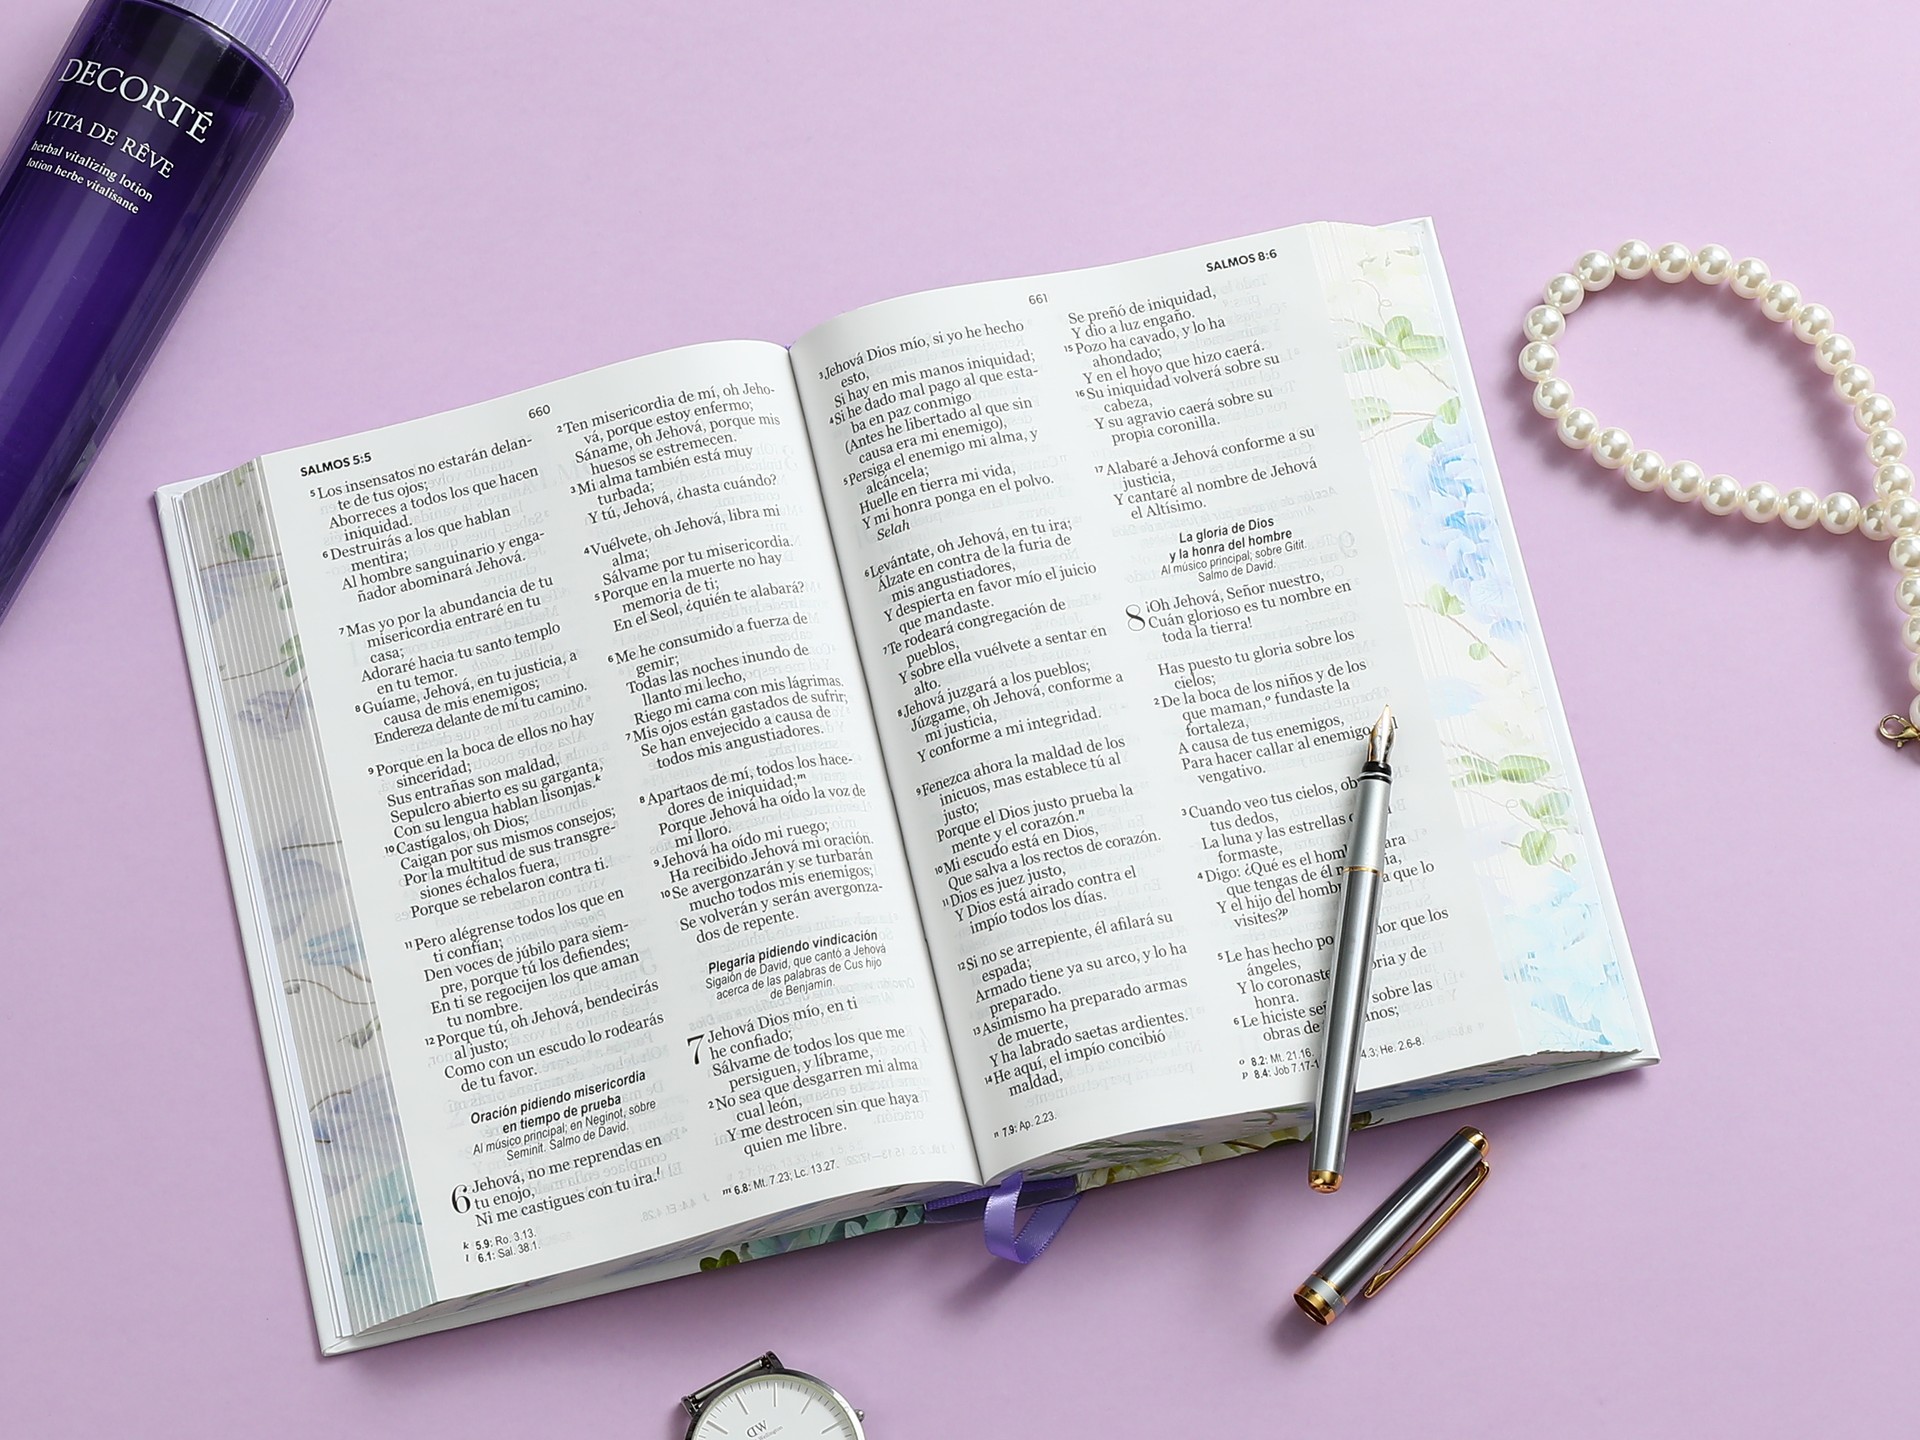 DECORTÉ
VITA DE RÊVE
herbal vitalizing lotion
lotion herbe vitalisante
SALMOS 5:5
660
5 Los insensatos no estarán delan-
te de tus ojos;
Aborreces a todos los que hacen
iniquidad.
6 Destruirás a los que hablan
mentira;
Al hombre sanguinario y enga-
ñador abominará Jehová.
7 Mas yo por la abundancia de tu
misericordia entraré en tu
casa;
Adoraré hacia tu santo templo
en tu temor.
8 Guíame, Jehová, en tu justicia, a
causa de mis enemigos;
Endereza delante de mí tu camino.
9 Porque en la boca de ellos no hay
sinceridad;
Sus entrañas son maldad,
Sepulcro abierto es su garganta,
Con su lengua hablan lisonjas.k
10 Castígalos, oh Dios;
Caigan por sus mismos consejos;
Por la multitud de sus transgre-
siones échalos fuera,
Porque se rebelaron contra ti.
11 Pero alégrense todos los que en
ti confían;
Den voces de júbilo para siem-
pre, porque tú los defiendes;
En ti se regocijen los que aman
tu nombre.
12 Porque tú, oh Jehová, bendecirás
al justo;
Como con un escudo lo rodearás
de tu favor.
Oración pidiendo misericordia
en tiempo de prueba
Al músico principal; en Neginot, sobre
Seminit. Salmo de David.
6 Jehová, no me reprendas en
tu enojo,
Ni me castigues con tu ira.l
k 5.9: Ro. 3.13.
l 6.1: Sal. 38.1.
2 Ten misericordia de mí, oh Jeho-
vá, porque estoy enfermo;
Sáname, oh Jehová, porque mis
huesos se estremecen.
3 Mi alma también está muy
turbada;
Y tú, Jehová, ¿hasta cuándo?
4 Vuélvete, oh Jehová, libra mi
alma;
Sálvame por tu misericordia.
5 Porque en la muerte no hay
memoria de ti;
En el Seol, ¿quién te alabará?
6 Me he consumido a fuerza de
gemir;
Todas las noches inundo de
llanto mi lecho,
Riego mi cama con mis lágrimas.
7 Mis ojos están gastados de sufrir;
Se han envejecido a causa de
todos mis angustiadores.
8 Apartaos de mí, todos los hace-
dores de iniquidad;m
Porque Jehová ha oído la voz de
mi lloro.
9 Jehová ha oído mi ruego;
Ha recibido Jehová mi oración.
10 Se avergonzarán y se turbarán
mucho todos mis enemigos;
Se volverán y serán avergonza-
dos de repente.
Plegaria pidiendo vindicación
Sigaión de David, que cantó a Jehová
acerca de las palabras de Cus hijo
de Benjamín.
7 Jehová Dios mío, en ti
he confiado;
Sálvame de todos los que me
persiguen, y líbrame,
2 No sea que desgarren mi alma
cual león,
Y me destrocen sin que haya
quien me libre.
m 6.8: Mt. 7.23; Lc. 13.27.
661
SALMOS 8:6
3 Jehová Dios mío, si yo he hecho
esto,
Si hay en mis manos iniquidad;
4 Si he dado mal pago al que esta-
ba en paz conmigo
(Antes he libertado al que sin
causa era mi enemigo),
5 Persiga el enemigo mi alma, y
alcáncela;
Huelle en tierra mi vida,
Y mi honra ponga en el polvo.
Selah
6 Levántate, oh Jehová, en tu ira;
Álzate en contra de la furia de
mis angustiadores,
Y despierta en favor mío el juicio
que mandaste.
7 Te rodeará congregación de
pueblos,
Y sobre ella vuélvete a sentar en
alto.
8 Jehová juzgará a los pueblos;
Júzgame, oh Jehová, conforme a
mi justicia,
Y conforme a mi integridad.
9 Fenezca ahora la maldad de los
inicuos, mas establece tú al
justo;
Porque el Dios justo prueba la
mente y el corazón.n
10 Mi escudo está en Dios,
Que salva a los rectos de corazón.
11 Dios es juez justo,
Y Dios está airado contra el
impío todos los días.
12 Si no se arrepiente, él afilará su
espada;
Armado tiene ya su arco, y lo ha
preparado.
13 Asimismo ha preparado armas
de muerte,
Y ha labrado saetas ardientes.
14 He aquí, el impío concibió
maldad,
n 7.9: Ap. 2.23.
Se preñó de iniquidad,
Y dio a luz engaño.
15 Pozo ha cavado, y lo ha
ahondado;
Y en el hoyo que hizo caerá.
16 Su iniquidad volverá sobre su
cabeza,
Y su agravio caerá sobre su
propia coronilla.
17 Alabaré a Jehová conforme a su
justicia,
Y cantaré al nombre de Jehová
el Altísimo.
La gloria de Dios
y la honra del hombre
Al músico principal; sobre Gitit.
Salmo de David.
8 ¡Oh Jehová, Señor nuestro,
Cuán glorioso es tu nombre en
toda la tierra!
Has puesto tu gloria sobre los
cielos;
2 De la boca de los niños y de los
que maman,o fundaste la
fortaleza,
A causa de tus enemigos,
Para hacer callar al enemigo
vengativo.
3 Cuando veo tus cielos, ob
tus dedos,
La luna y las estrellas
formaste,
4 Digo: ¿Qué es el hom ara
que tengas de él
Y el hijo del homb a que lo
visites?p
5 Le has hecho po or que los
ángeles,
Y lo coronaste oria y de
honra.
6 Le hiciste se sobre las
obras de anos;
o 8.2: Mt. 21.16.
p 8.4: Job 7.17-1 4.3; He. 2.6-8.
DW